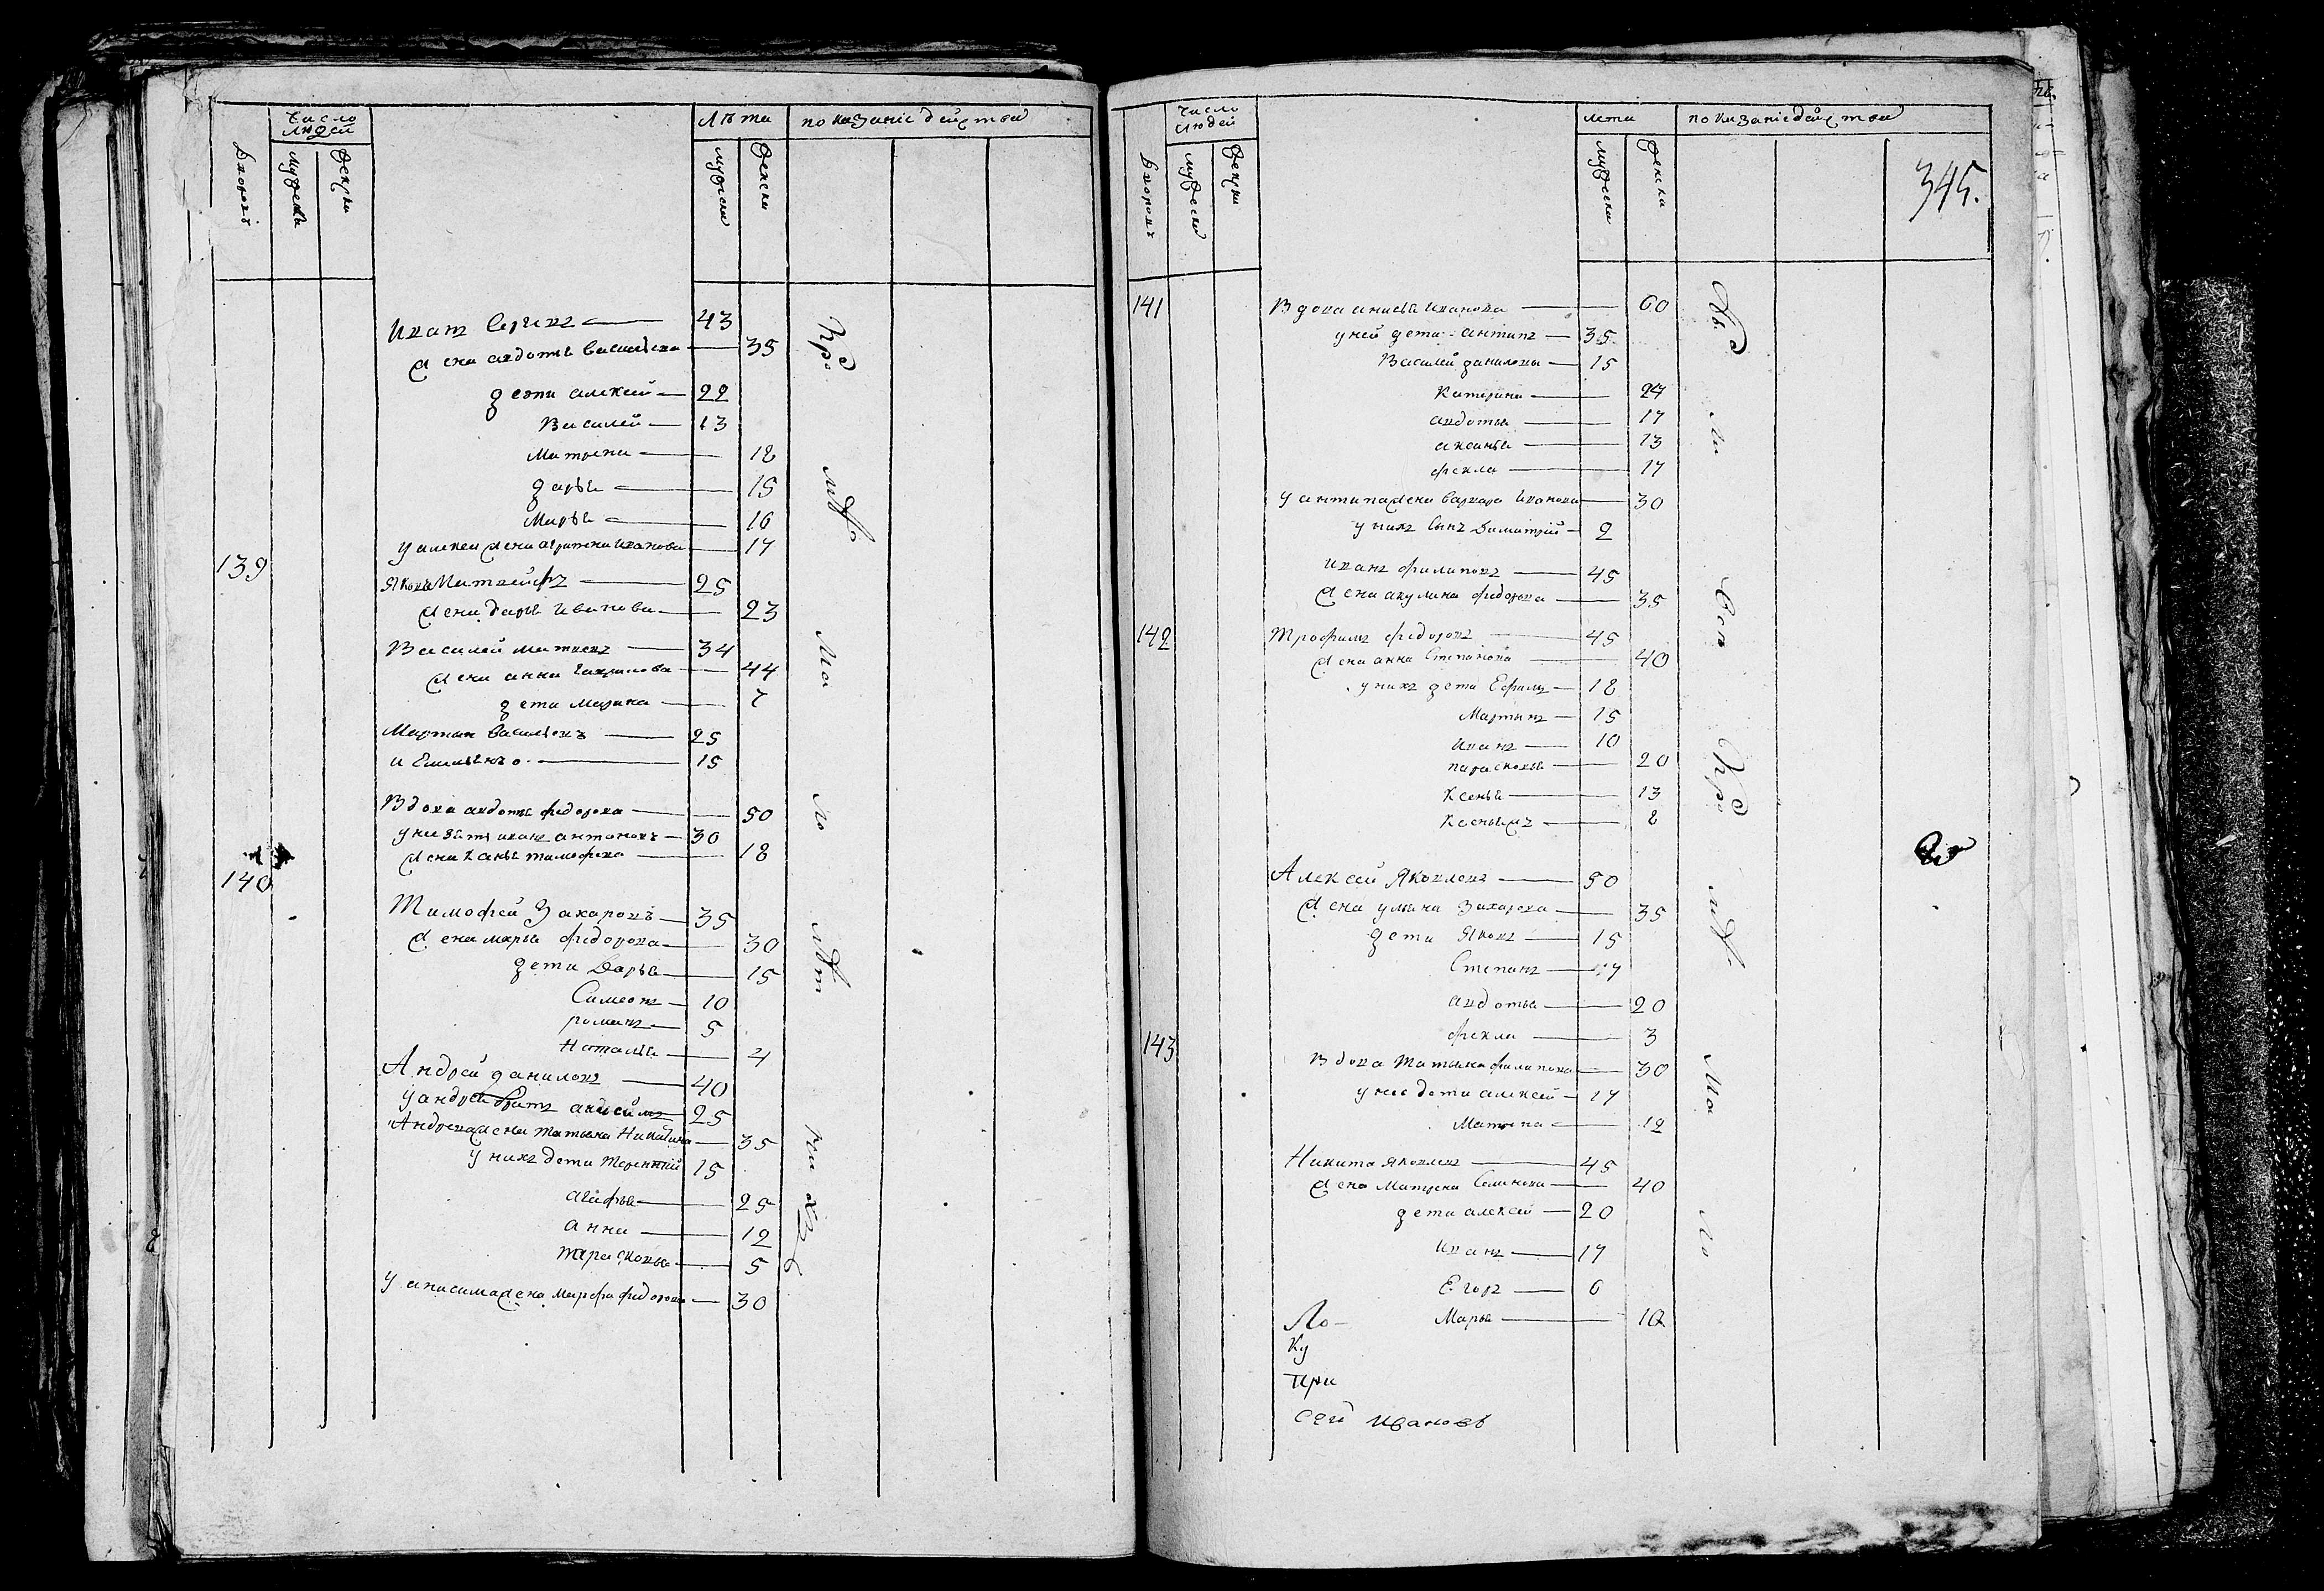 Число людей
Лѣта
показаніе действа
Дворовъ
мужеска
женска
мужеска
женска
Иванъ Сергевъ 43
жена авдотья васильева 35
дети алексей 22
Василей 13
Матрена 18
дарья 15
Марья 10
у алексея жена Иванова 17
139
Яковъ Матвейфъ 25
жена дарья Иванова 23
Василей матвевъ 34
жена анна Гаврилова 44
дети Марина 7
Мартын васильевъ 25
и Емельянъ 15
Вдова авдотья федорова 50
у нее зять иванъ антоновъ 30
жена тимофева 18
140
Тимофей Захаровъ 35
жена марья федорова 30
дети Дарья 15
Симеонъ 10
романъ 5
Наталья 4
Андрей даниловъ 40
у андрея братъ 25
Андреева жена татьяна Никитина 35
у нихъ дети терентий 15
агафья 25
анна 12
парасковья 5
у анисима жена Марфа федорова 30
Число людей
лета
показаніе действа
Дворовъ
мужеска
женска
мужеска
женска
345.
141
Вдова анисья Иванова 60
у ней дети антипъ 35
Василей даниловы 15
Катерина 24
авдотья 17
аксинья 13
фекла 17
у антипа жена варвара Иванова 30
у нихъ сынъ Димитрий 2
иванъ филиповъ 45
жена акулина федорова 35
142
Трофимъ федоровъ 45
жена анна Степанова 40
у нихъ дети Ефимъ 18
Мартынъ 15
Иванъ 10
парасковья 20
Ксенья 13
8
Алексей Яковлевъ 50
жена ульяна Захарова 35
дети Яковъ 15
Степанъ 17
авдотья 20
фекла 3
143
Вдова Татьяна филипова 30
у нее дети алексей 17
Матрена 12
Никита яковлевъ 45
жена Матрена Семенова 40
дети алексей 20
Иванъ 17
Егоръ 6
Марья 10
Ло-
Ку
при
сей Ивановъ